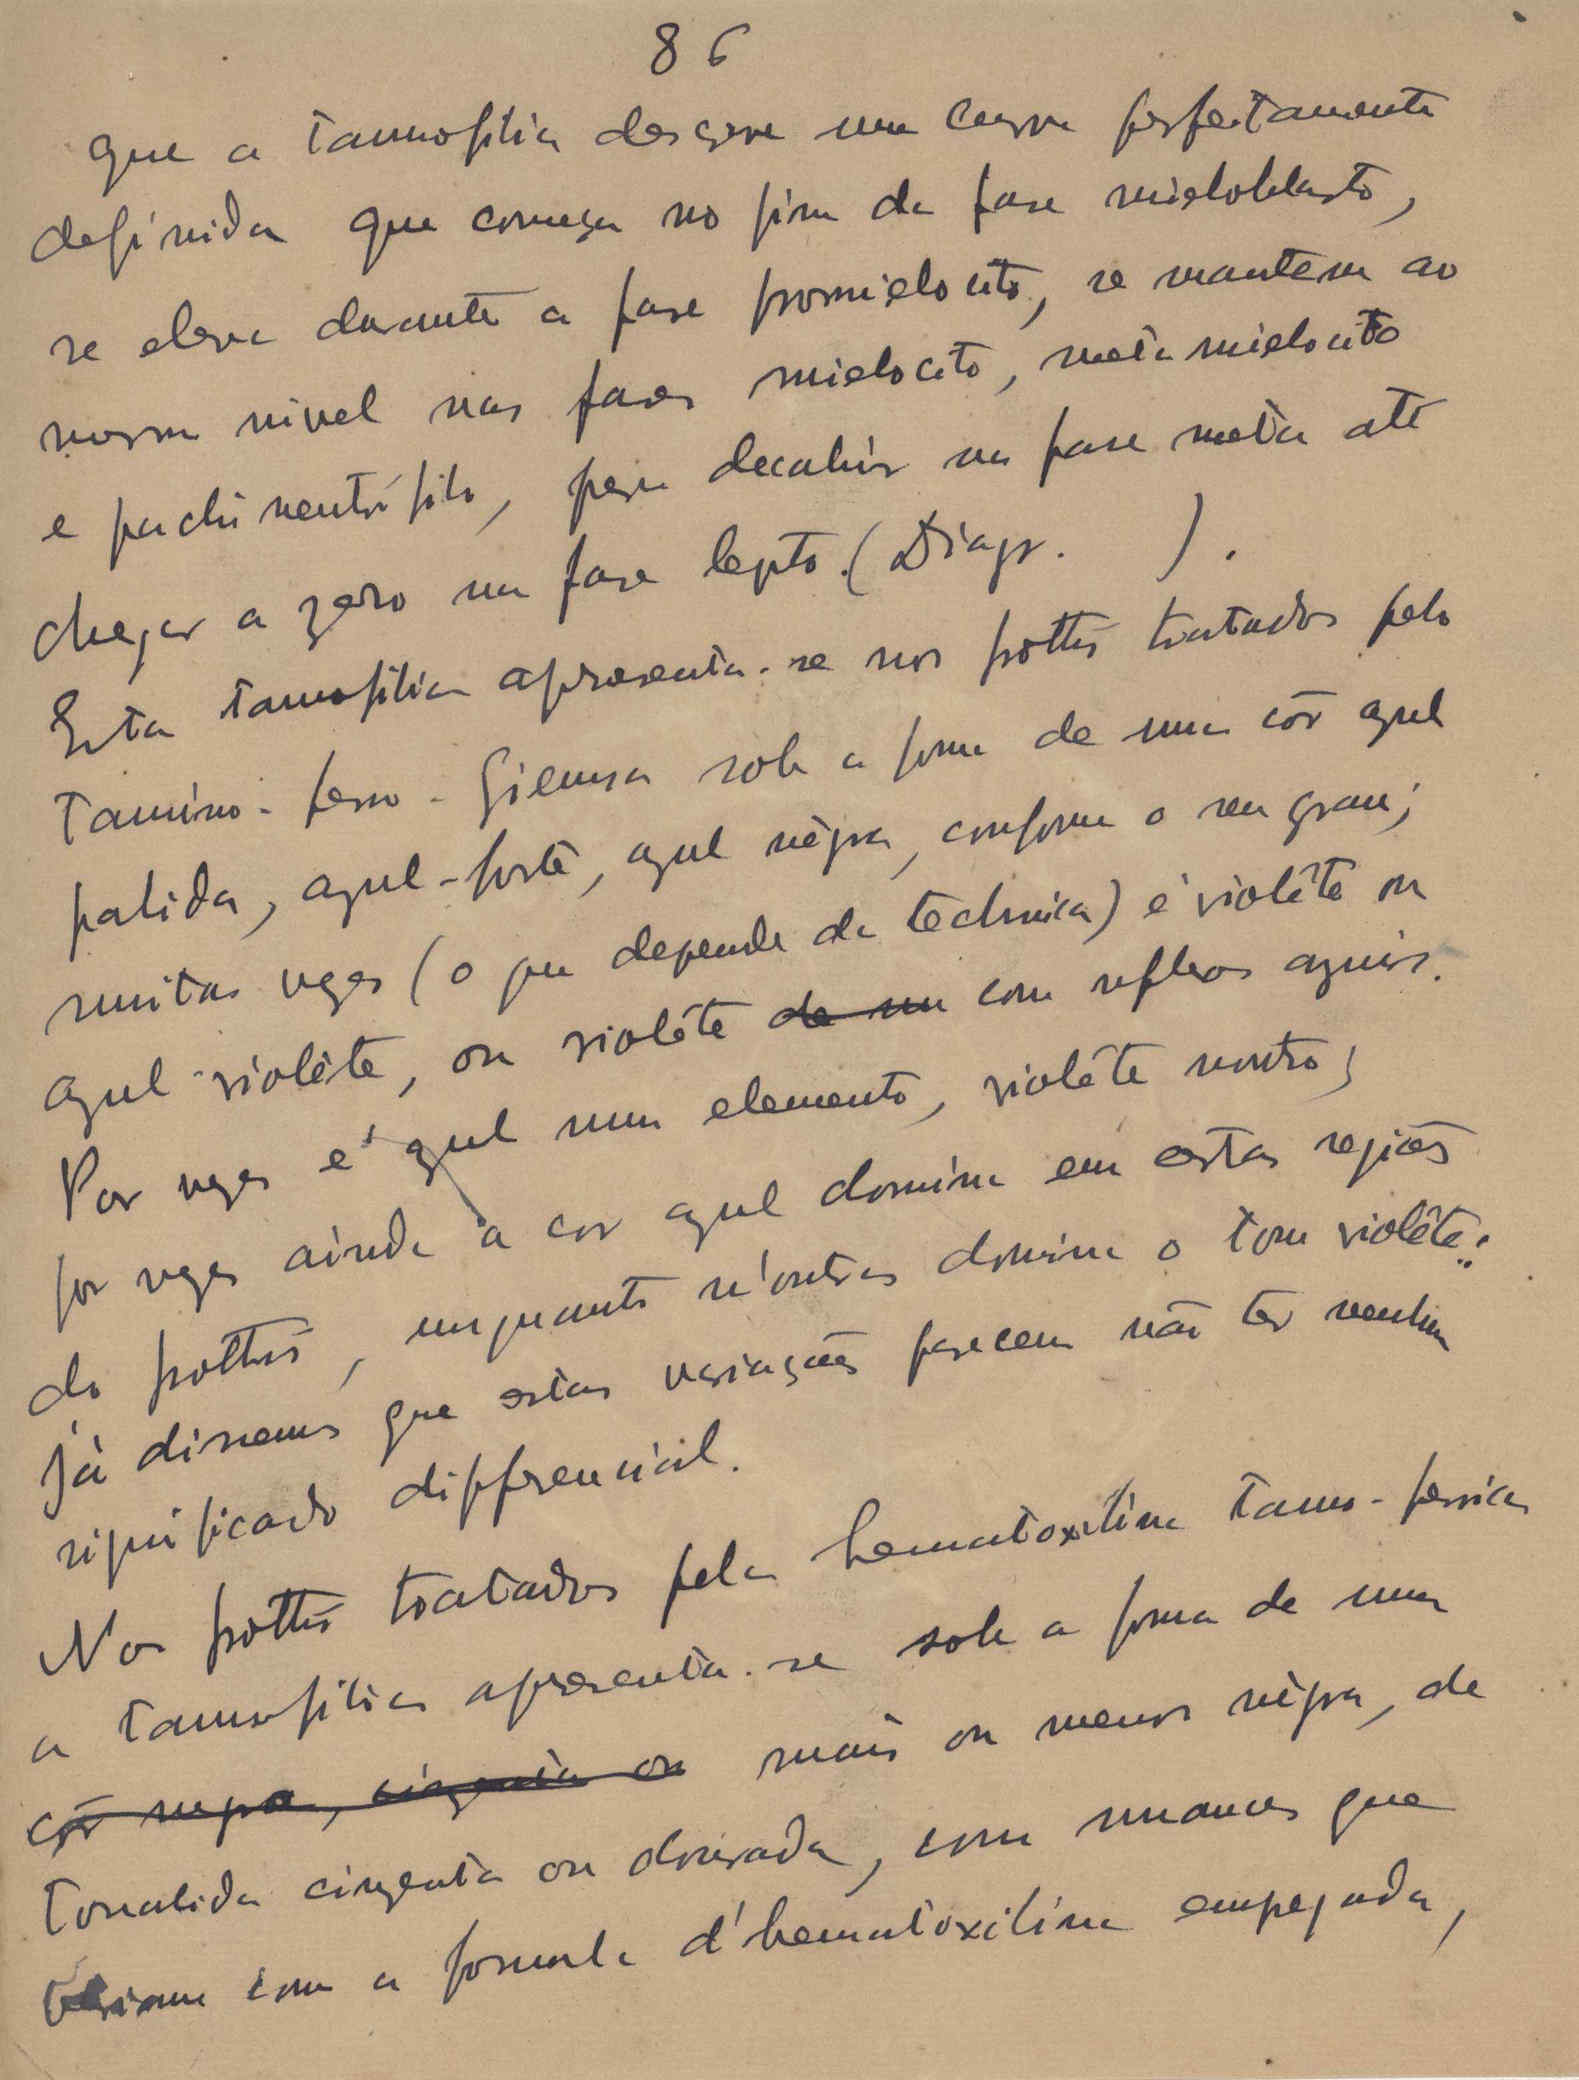 86
que a tannofilia descreve uma curva perfeitamente
definida que começa no fim da fase mieloblasto,
se eleva durante a fase promielocito, se mantem ao
mesmo nivel nas fases mielocito, metamielocito
e pachineutrófilo, para decahir na fase meta até
chegar a zero na fase lepto. (Diagr.    ).
Esta tannofilia apresenta-se nos frottis tratados pelo
tanino-ferro-Giemsa sob a forma de uma côr azul
palida, azul-forte, azul negra, conforme o seu grau;
muitas vezes (o que depende da technica) é violête ou
azul-violête, ou violête de um com reflexos azuis.
Por vezes é azul num elemento, violête noutro;
por vezes ainda a cor azul domina em estas regiões
do frottis, enquanto n'outras domina o tom violête:
já dissemos que estas variações parecem não ter nenhum
significado differencial.
Nos frottis tratados pela hematoxilina tanno-ferrica
a tannofilia apresenta-se sob a forma de uma
côr negra, cinzenta ou mais ou menos négra, de
tonalida cinzenta ou dourada, com nuances que
variam com a formula d'hematoxilina empegada,